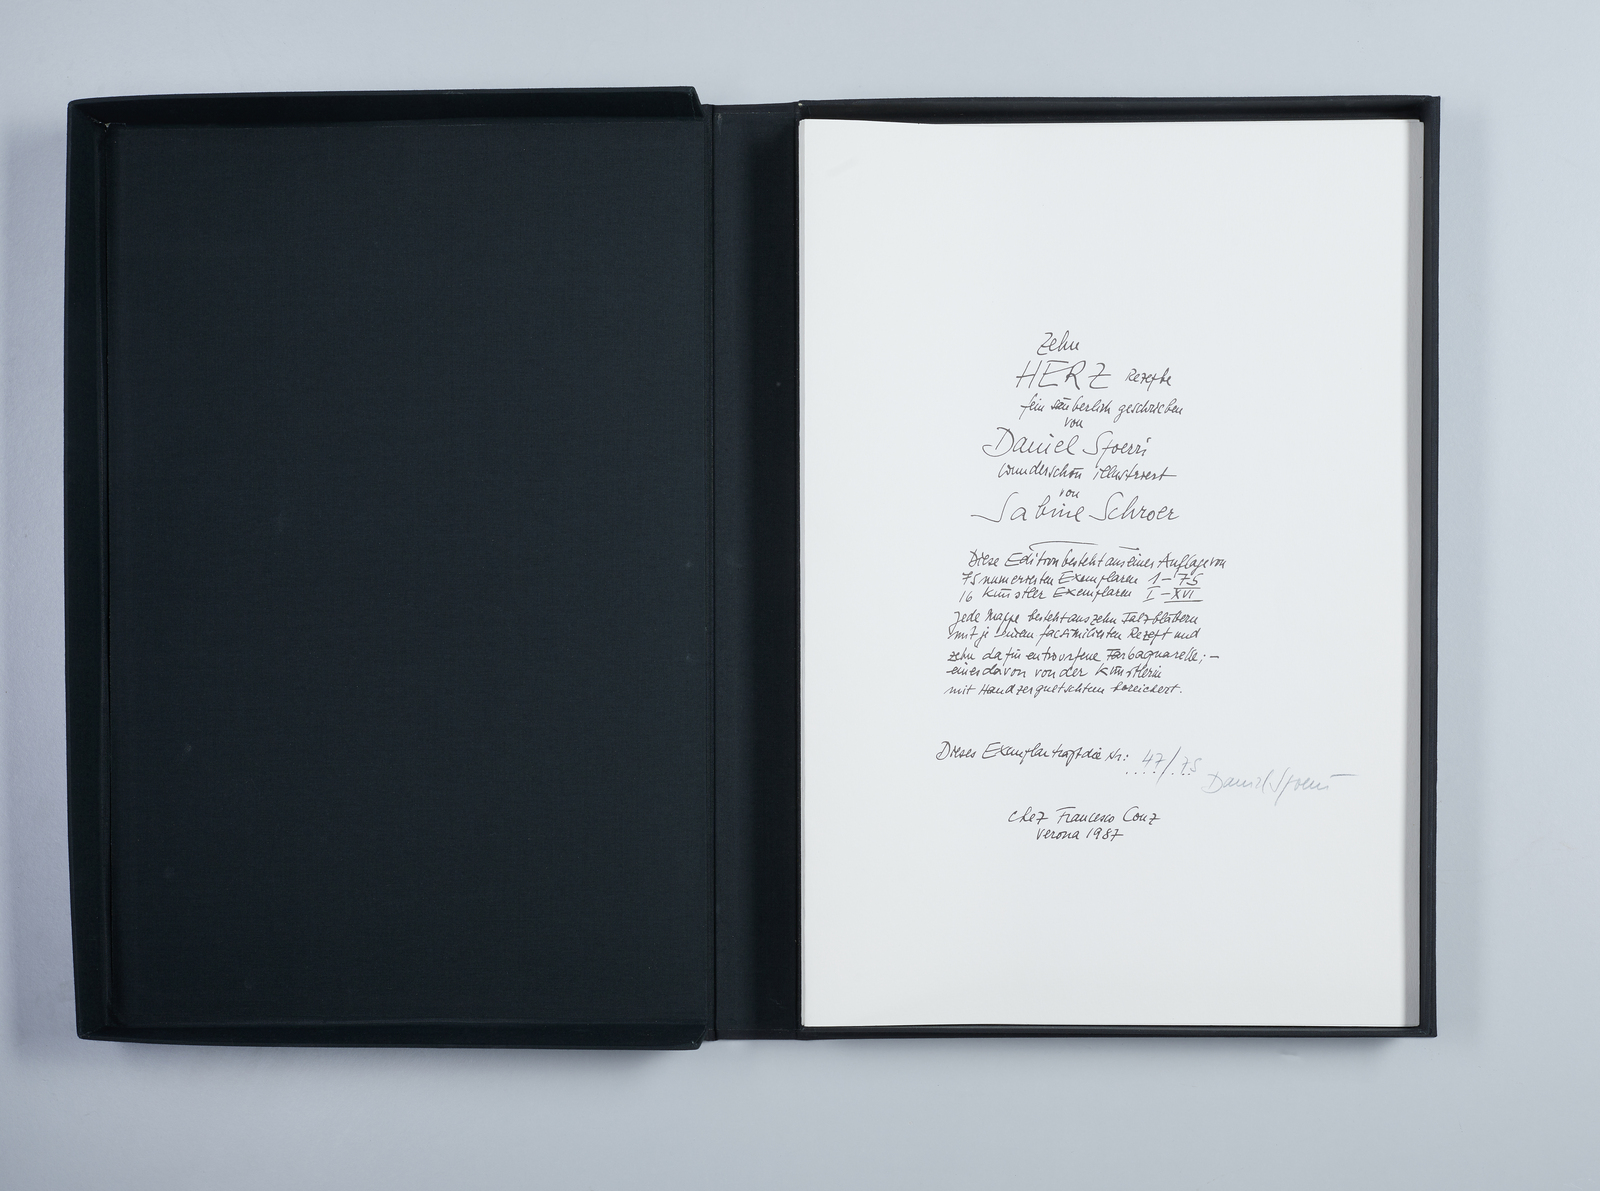 Zehn
HERZ Rezepte
fein säuberlich geschrieben
von
Daniel Spoerri
wunderschön illustriert
von
Sabine Schroer
Diese Edition besteht aus einer Auflage von
75 numerierten Exemplaren 1-75
16 Künstler Exemplaren I-XVI
Jede Mappe besteht aus zehn Falzblättern
mit je einem facsimilierten Rezept und
zehn dafür entworfene Farbaquarelle; -
eines davon von der Künstlerin
mit Handzerquetschtem bereichert.
Dieses Exemplar trägt die Nr.: 47/75
Daniel Spoerri
chez Francesco Conz
Verona 1987